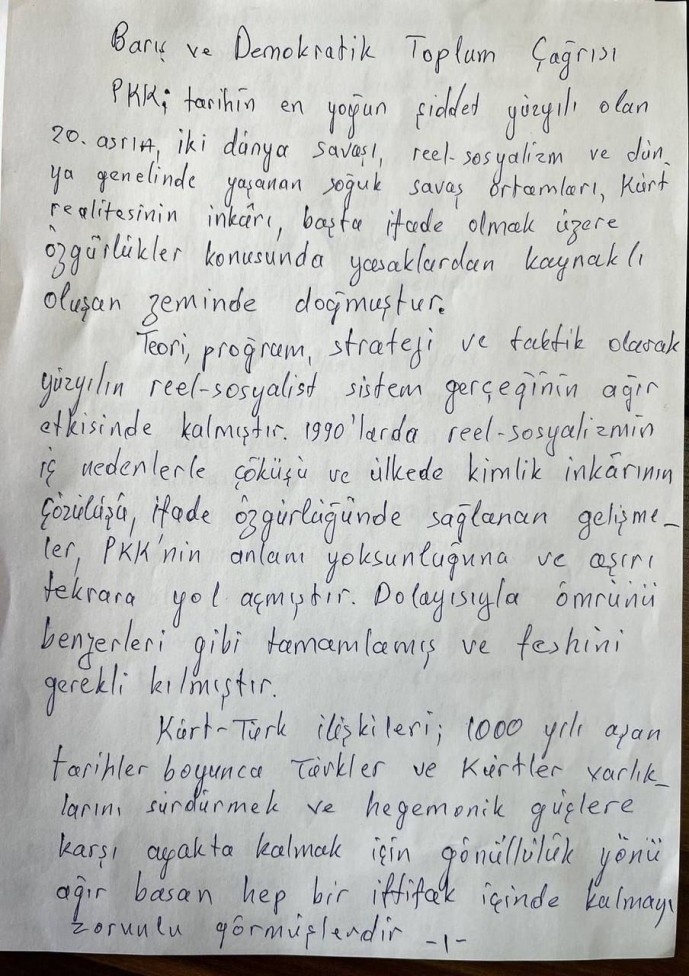 Barış ve Demokratik Toplum Çağrısı
PKK; tarihin en yoğun şiddet yüzyılı olan
20. asrın, iki dünya savaşı, reel-sosyalizm ve dün
ya genelinde yaşanan soğuk savaş ortamları, Kürt
realitesinin inkârı, başta ifade olmak üzere
özgürlükler konusunda yasaklardan kaynaklı
oluşan zeminde doğmuştur.
Teori, proğram, strateji ve taktik olarak
yüzyılın reel-sosyalist sistem gerçeğinin ağır
etkisinde kalmıştır. 1990'larda reel-sosyalizmin
iç nedenlerle çöküşü ve ülkede kimlik inkârının
çözülüşü, ifade özgürlüğünde sağlanan gelişme-
ler, PKK'nin anlam yoksunluğuna ve aşırı
tekrara yol açmıştır. Dolayısıyla ömrünü
benzerleri gibi tamamlamış ve feshini
gerekli kılmıştır.
Kürt-Türk ilişkileri; 1000 yılı aşan
tarihler boyunca Türkler ve Kürtler varlık-
larını sürdürmek ve hegemonik güçlere
karşı ayakta kalmak için gönüllülük yönü
ağır basan hep bir ittifak içinde kalmayı
zorunlu görmüşlerdir -1-